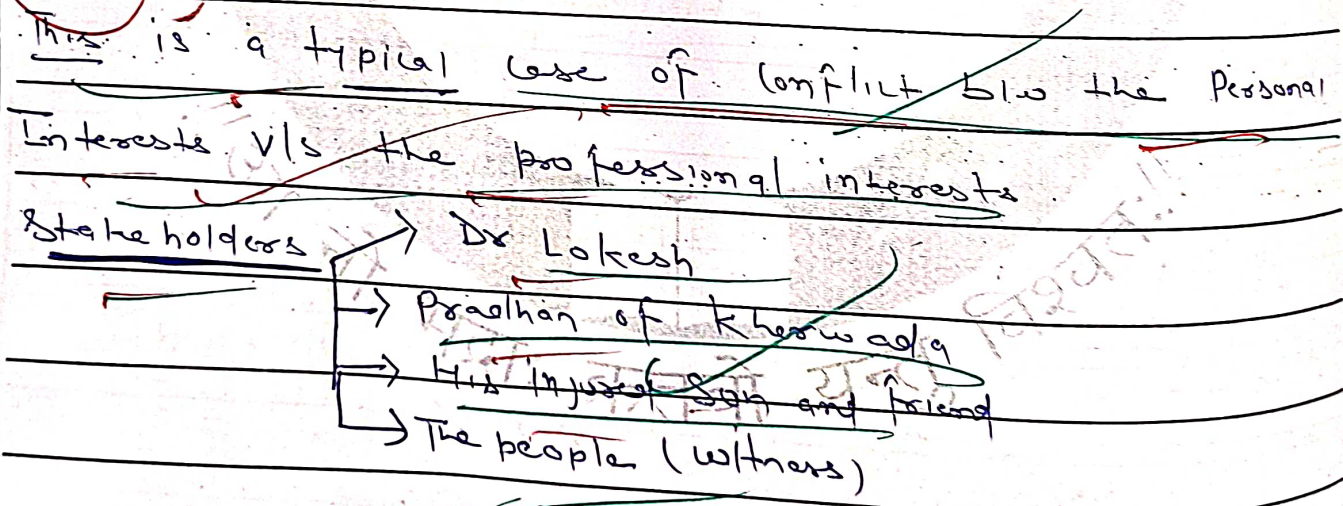 This is a typical case of conflict b/w the Personal
Interests v/s the professional interests.
Stakeholders → Dr Lokesh
→ Pradhan of Kherwada
→ His injured Son and friend
→ The people (witness)